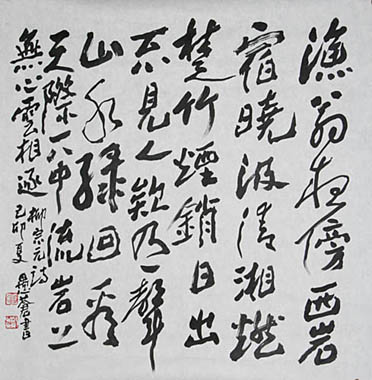 漁翁夜傍西岩
宿曉汲清湘燃
楚竹煙銷日出
不見人欸乃一聲
山水綠回看
天際下中流岩上
無心雲相逐
柳宗元詩
己卯夏
書